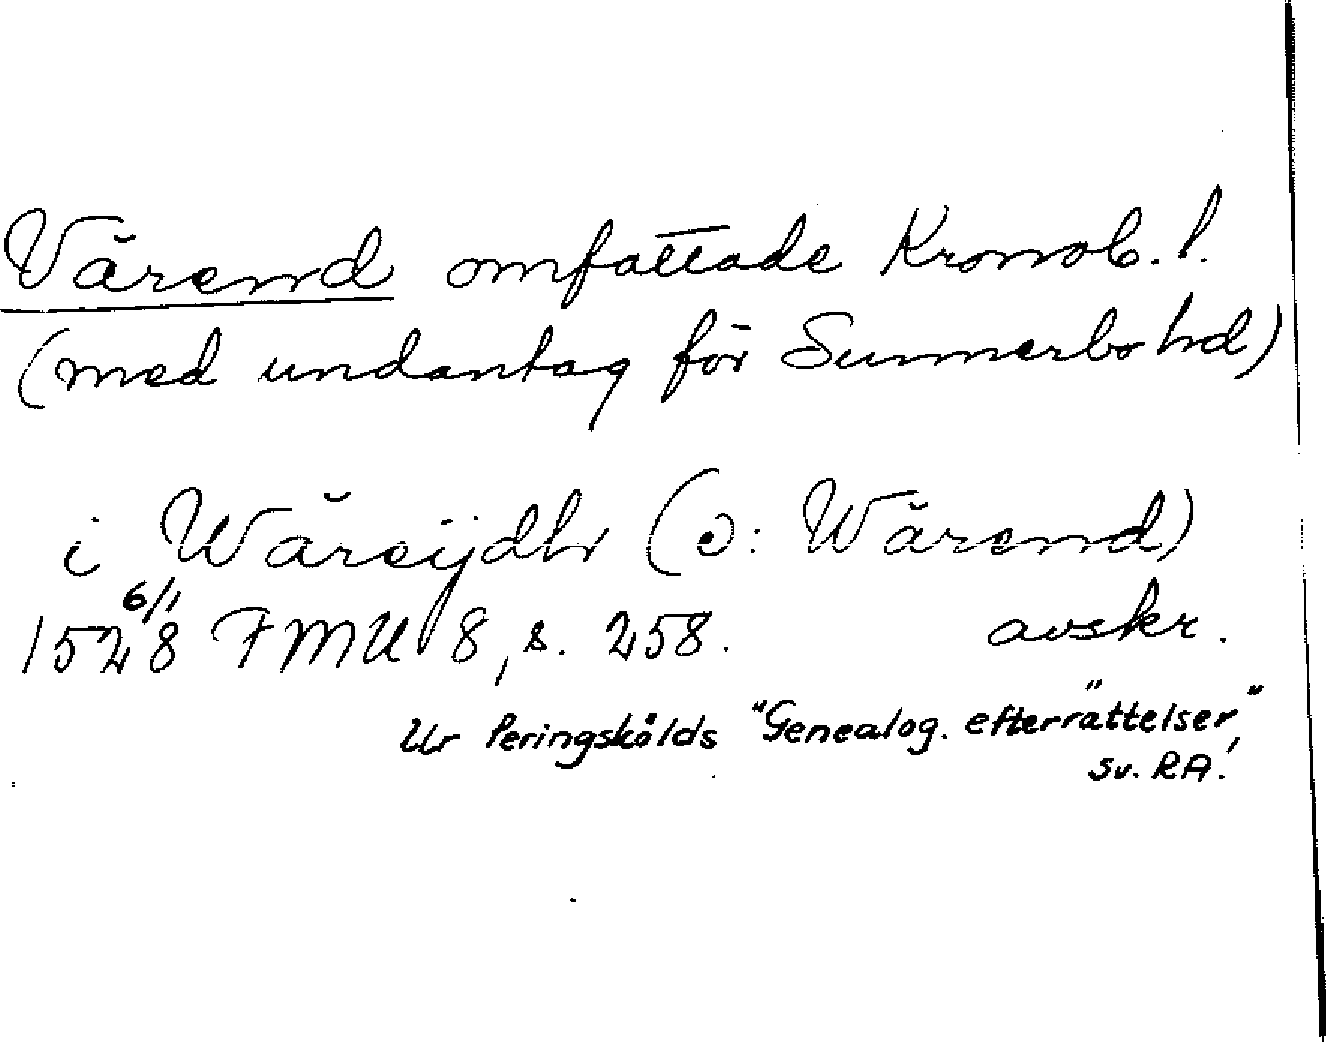 Värend omfattade Kronob. l.
(med undantag för Sunnerbo hd)
i Wäreijdhr (ɔ: Wärend)
1528 6/1 FMU 8, s. 258. avskr.
Ur Peringskölds "Genealog. efterrättelser",
Sv. RA!